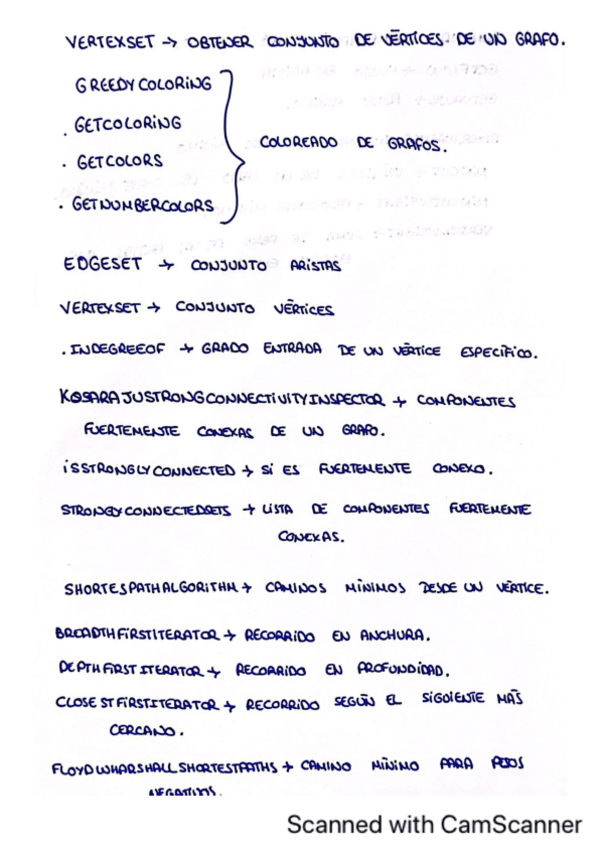 VERTEXSET → OBTENER CONJUNTO DE VÉRTICES DE UN GRAFO.
GREEDYCOLORING
. GETCOLORING
COLOREADO DE GRAFOS.
. GETCOLORS
. GETNUMBERCOLORS
EDGESET → CONJUNTO ARISTAS
VERTEXSET → CONJUNTO VÉRTICES
. INDEGREEOF → GRADO ENTRADA DE UN VÉRTICE ESPECÍFICO.
KOSARAJUSTRONGCONNECTIVITYINSPECTOR → COMPONENTES
FUERTEMENTE CONEXAS DE UN GRAFO.
ISSTRONGLYCONNECTED → SI ES FUERTEMENTE CONEXO.
→ LISTA DE COMPONENTES FUERTEMENTE
CONEXAS.
SHORTESPATHALGORITHM → CAMINOS MÍNIMOS DESDE UN VÉRTICE.
BREADTHFIRSTITERATOR → RECORRIDO EN ANCHURA.
DEPTHFIRSTITERATOR → RECORRIDO EN PROFUNDIDAD.
CLOSESTFIRSTITERATOR → RECORRIDO SEGÚN EL SIGUIENTE MÁS
CERCANO.
FLOYDWHARSHALLSHORTESTPATHS → CAMINO MÍNIMO PARA
NEGATIVOS.
Scanned with CamScanner